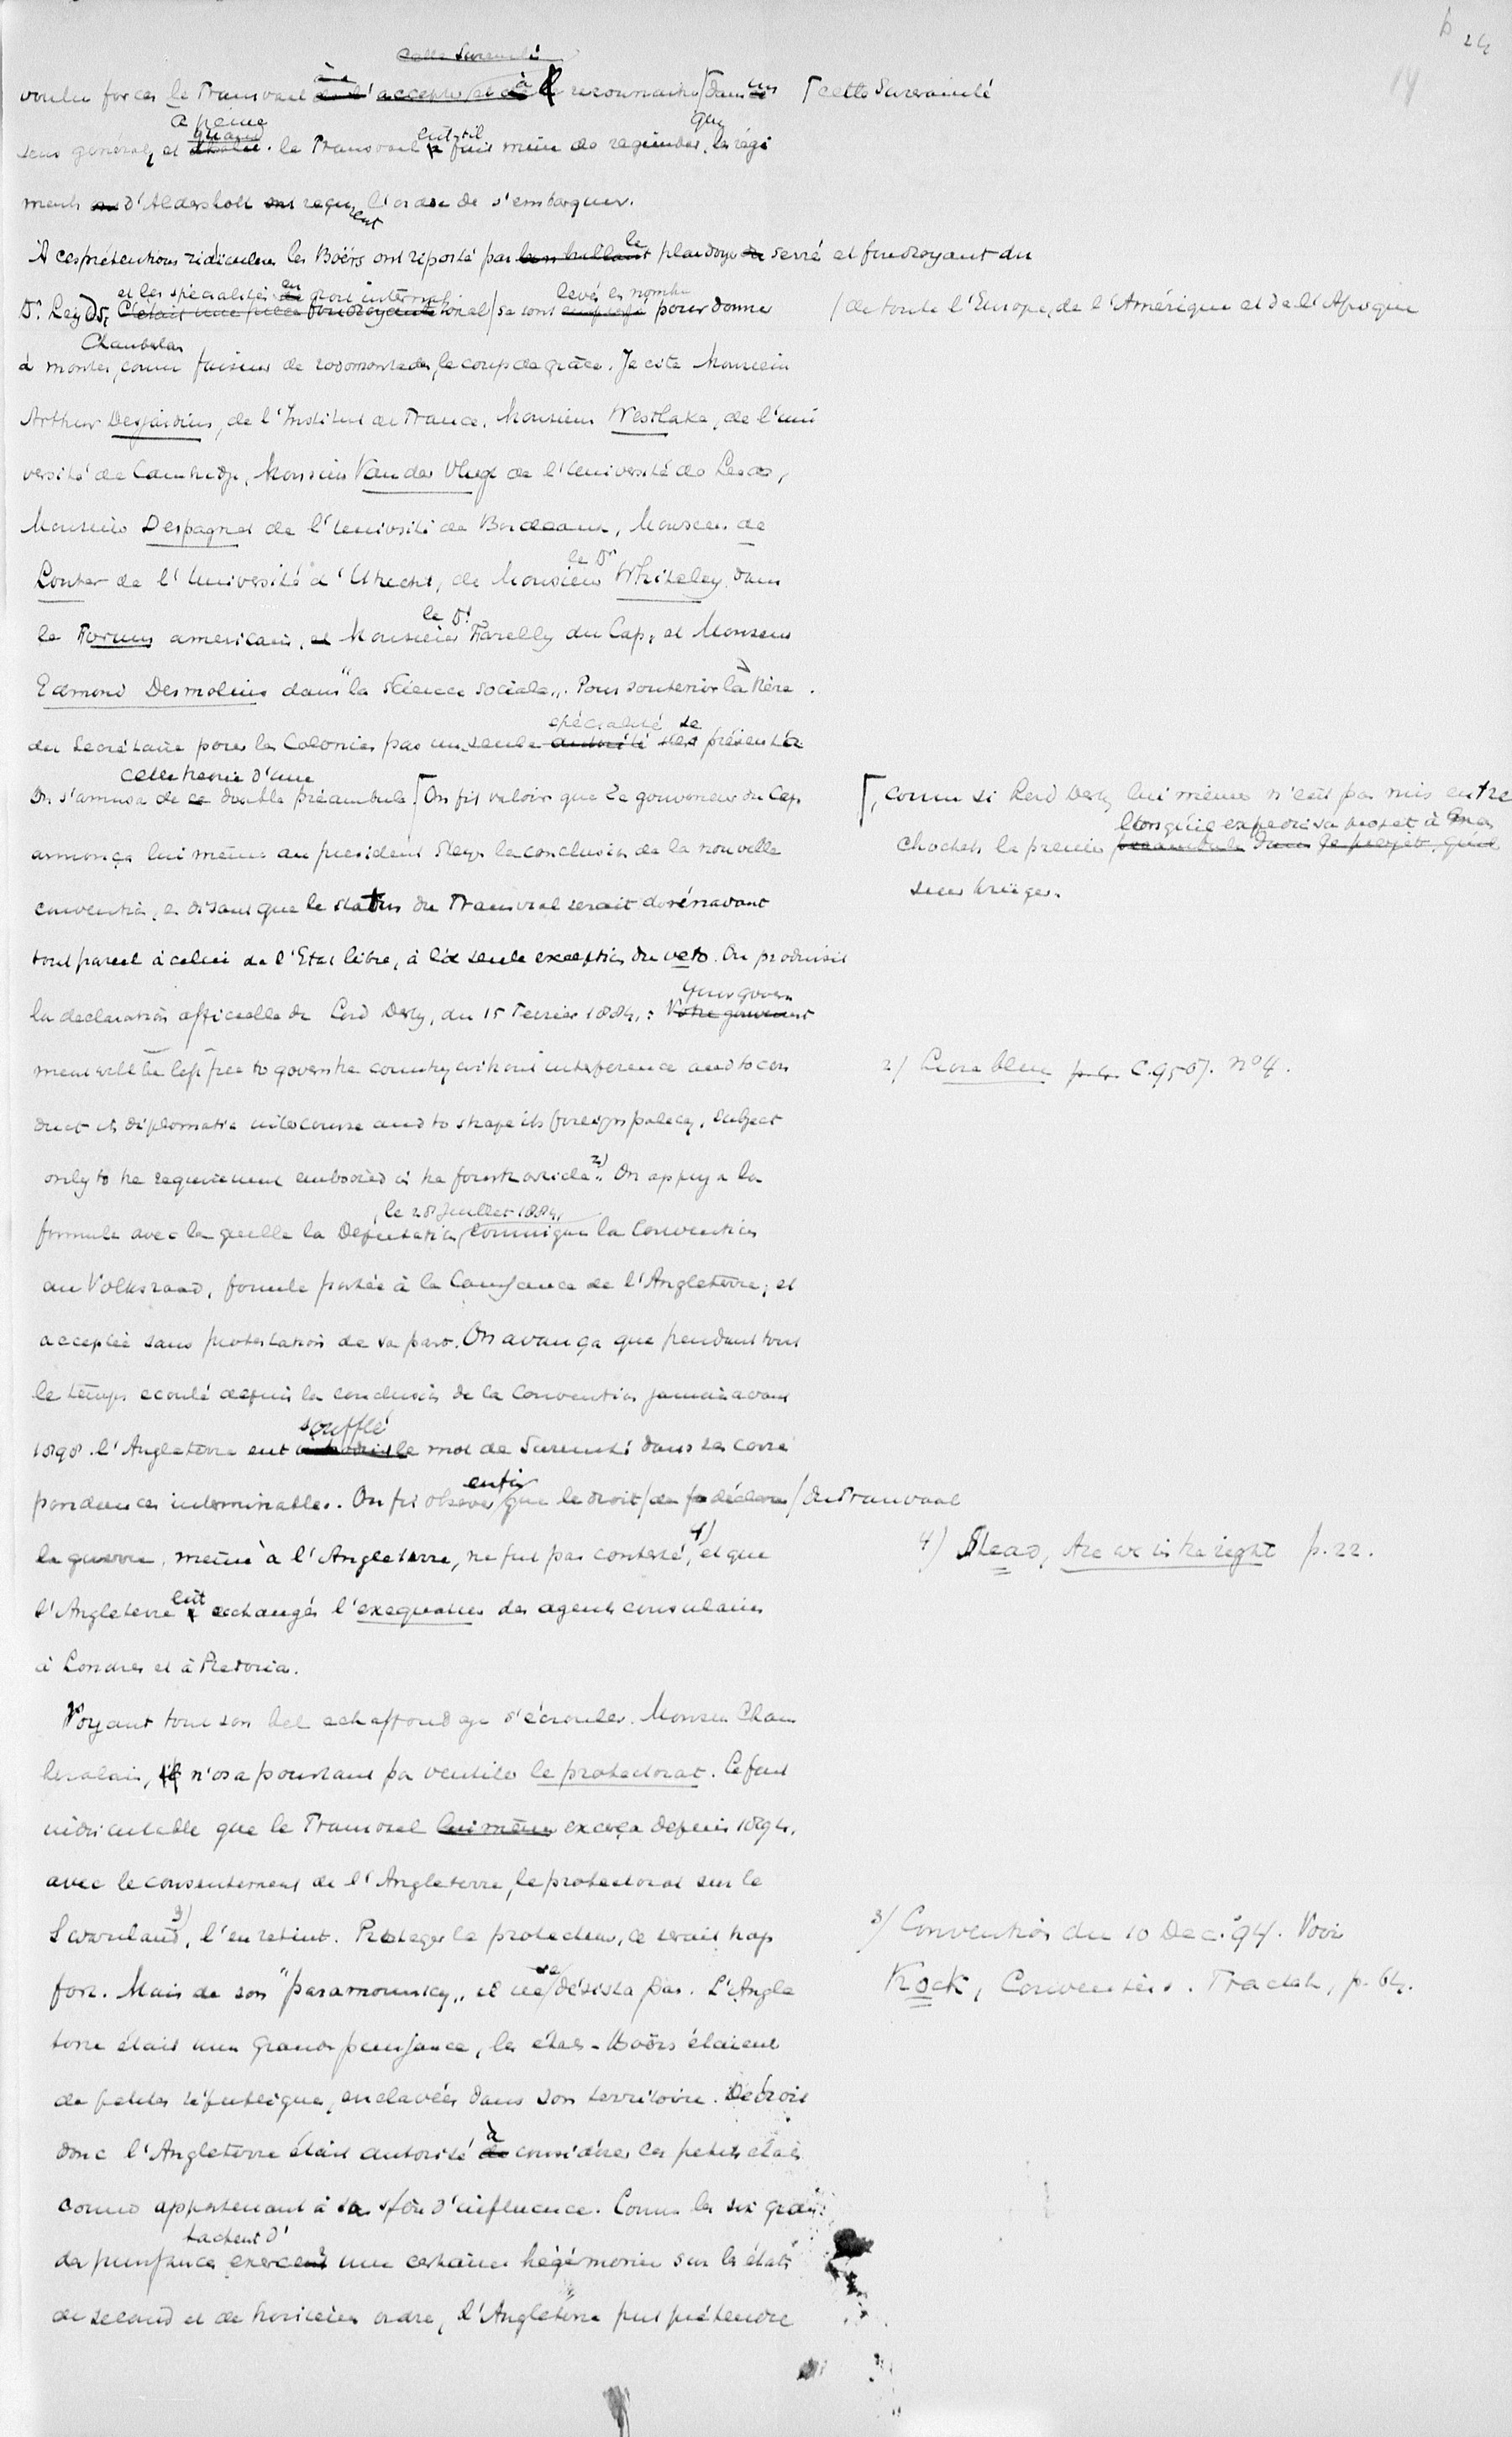 p 24
14
cette Suzeraineté
voulu forcer le Transvaal à reconnaître dans un ⌈cette Suzeraineté
à peine quand eut-il que
sens général, et le Transvaal fait mine de regimber, les régi
ments d'Aldershott reçurent l'ordre de s'embarquer.
A ces prétentions ridicules les Boërs ont riposté par le plaidoyer serré et foudroyant du
et les spécialités en droit internat levés en nombre
Dr. Leyds, C'était une pièce foudroyante ional/se sont pour donner /de toute l'Europe, de l'Amérique et de l'Afrique
Chamberlain
à comme faiseur de rodomontades, le coup de grâce. Je cite Monsieur
Arthur Desjardins, de l'Institut de France. Monsieur Westlake, de l'uni
versité de Cambridge, Monsieur Van der Vlugt de l'Université de
Monsieur Despagnet de l'Université de Bordeaux, Monsieur de
le Dr
Louter de l'Université d'Utrecht, de Monsieur Whiteley dans
le Dr
le Forum americain, et Monsieur Farelly du Cap, et Monsieur
Edmond Desmolins dans "la Science Sociale„. Pour soutenir la thèse
spécialité se
du Secrétaire pour les Colonies pas une seule autorité s'est présentée
cette theorie d'une
On s'amusa de ce double préambule ⌈On fit valoir que le gouverneur du Cap ⌈, comme si Lord Derby lui même n'eût pas mis entre
lorsqu'il expedia son projet à
annonça lui même au president Steyn la conclusion de la nouvelle crochets le premier préambule dans le projet, qu'il
convention, en disant que le status du Transvaal serait dorénavant
tout pareil à celui de l'Etat libre, à la seule exception du veto. On produisit
Your govern
la declaration officielle de Lord Derby, du 15 Fevrier 1884,: Votre gouvernement
ment will be left free to govern the country without interference and to con 2) Livre bleu C. 9507. no 4.
duct its diplomatic intercourse and to shape its foreign policy, subject
only to the requirement embodied in the fourth article 2)„. On appuya la
le 28 Juillet 1884,
formule avec laquelle la Deputation communiqua la Convention
au Volksraad, formule portée à la Connaissance de l'Angleterre, et
acceptée sans protestation de sa part. On avança que pendant tout
le temps ecoulé depuis la conclusion de la Convention jamais avant
soufflé
1898 l'Angleterre eut le mot de Suzeraineté dans sa corre
enfin
pondences interminables. On fit observer que le droit /de déclarer /du Transvaal
la guerre, même à l'Angleterre, ne fut pas contesté 4), et que 4) Stead, Are we in the right p. 22.
eût
l'Angleterre echangés l'exequatur des agents consulaires
à Londres et à Pretoria.
Voyant tout son bel echaffoudage s'écrouler. Monsieur Cham
berlain, n'osa pourtant pas ventiler le protectorat. Le fait
indiscutable que le Transvaal lui même exerça depuis 1894,
avec le consentement de l'Angleterre, le protectorat sur le
Swaziland 3), l'en retint. Protéger le protecteur, ce serait trop 3) Convention du 10 Dec. 94. Voir
se
fort. Mais de son "paramountcy„ il ne désista pas. L'Angle Kock, Conventiën. Tractah, p. 64.
terre était une grande puissance, les états-Boërs étaient
de petites républiques, enclavées dans son territoire. De droit
à
donc l'Angleterre était autorisé de considérer ces petits états
comme appartenant à sa sfère d'influence. Comme les six gran
tachent d'
des puissances exercent une certaine hégémonie sur les états
de second et de troisième ordre, l'Angleterre put prétendre